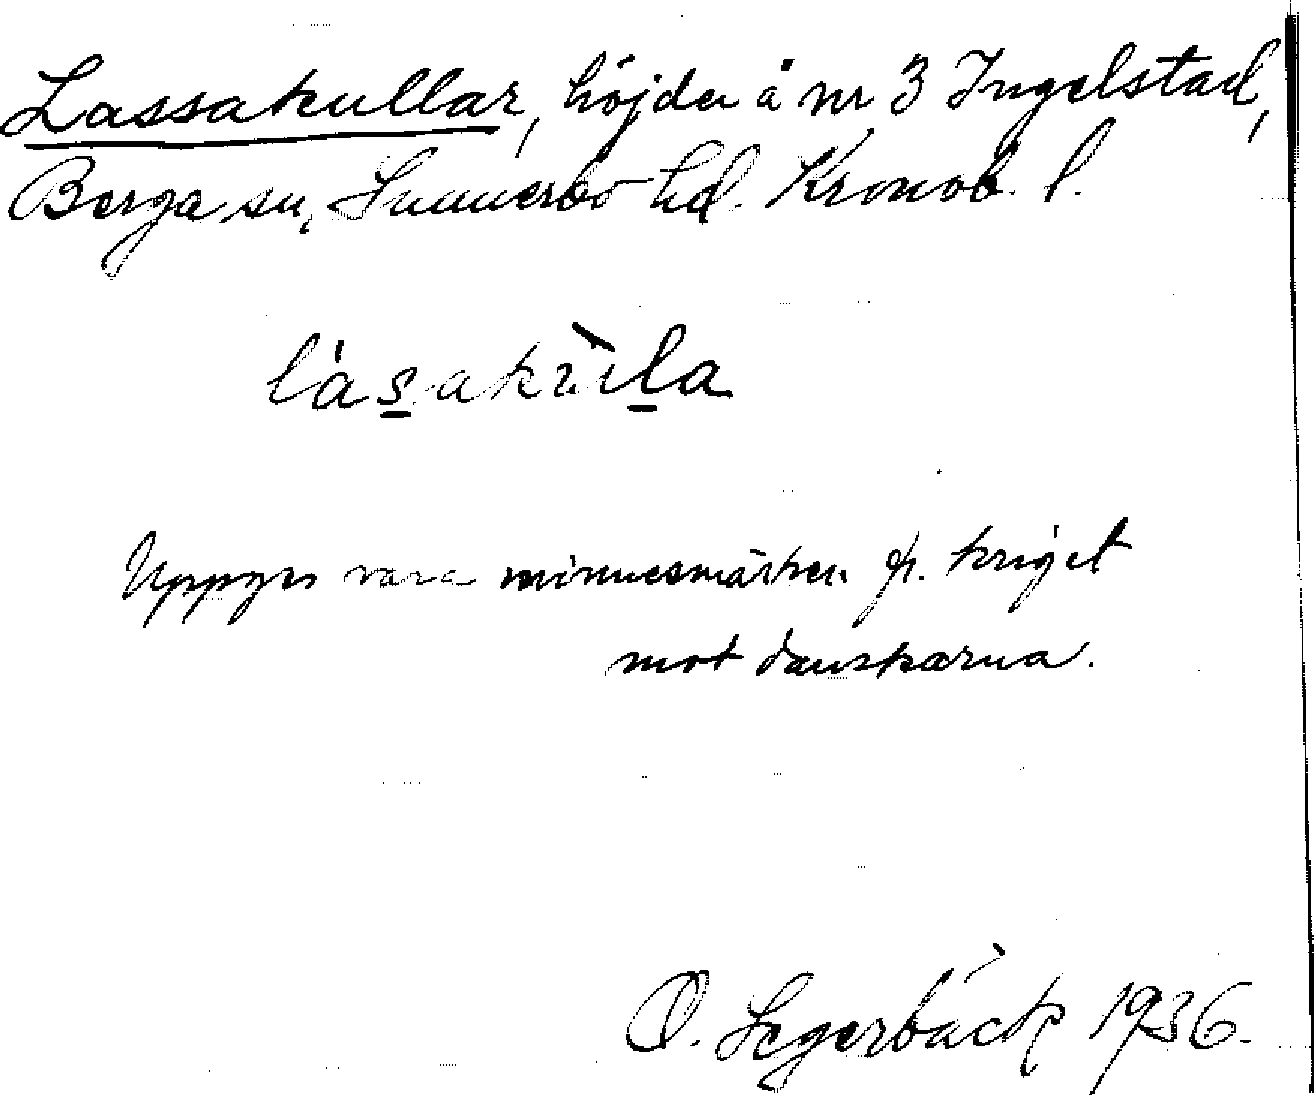 Lassakullar, höjder å nr 3 Ingelstad,
Berga sn, Sunnerbo hd. Kronob. l.
lásakùla
Uppges vara minnesmärken fr. kriget
mot danskarna.
O. Segerbäck 1936.